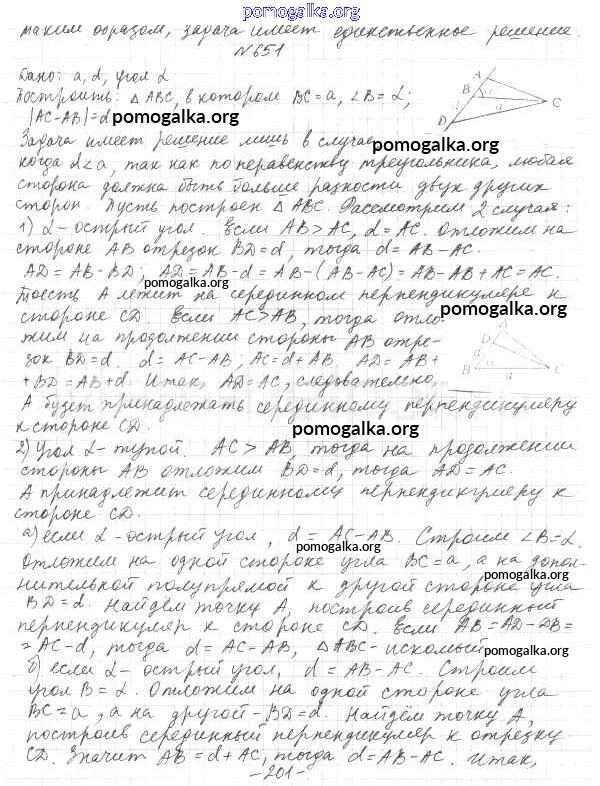 pomogalka.org
таким образом, задача имеет единственное решение.
№651
Дано: a, d, угол α
Построить: △ABC, в котором BC=a, ∠B=α;
|AC-AB|=d pomogalka.org pomogalka.org
Задача имеет решение лишь в случае,
когда d<a, так как по неравенству треугольника, любая
сторона должна быть больше разности двух других
сторон. Пусть построен △ABC. Рассмотрим 2 случая:
1) α-острый угол. Если AB>AC, d=AC. Отложим на
стороне AB отрезок BD=d, тогда d=AB-AC.
AD=AB-BD; AD=AB-d=AB-(AB-AC)=AB-AB+AC=AC.
pomogalka.org
Тоесть A лежит на серединном перпендикуляре к
стороне CD. Если AC>AB, тогда отло- pomogalka.org
жим на продолжении стороны AB отре-
зок BD=d. d=AC-AB; AC=d+AB. AD=AB+
+BD=AB+d. Итак, AD=AC, следовательно,
A будет принадлежать серединному перпендикуляру
к стороне CD. pomogalka.org
2) Угол α-тупой. AC>AB, тогда на продолжении
стороны AB отложим BD=d, тогда AD=AC.
A принадлежит серединному перпендикуляру к
стороне CD.
а) если α-острый угол, d=AC-AB. Строим ∠B=α.
pomogalka.org
Отложим на одной стороне угла BC=a, а на допол-
нительной полупрямой к другой стороне угла pomogalka.org
BD=d. Найдём точку A, построив серединный
перпендикуляр к стороне CD. Если AB=AD-DB=
=AC-d, тогда d=AC-AB, △ABC-искомый pomogalka.org
б) если α-острый угол, d=AB-AC. Строим
угол B=α. Отложим на одной стороне угла
BC=a, а на другой-BD=d. Найдём точку A,
pomogalka.org
построив серединный перпендикуляр к отрезку
CD. Значит AB=d+AC, тогда d=AB-AC. Итак,
-201- pomogalka.org